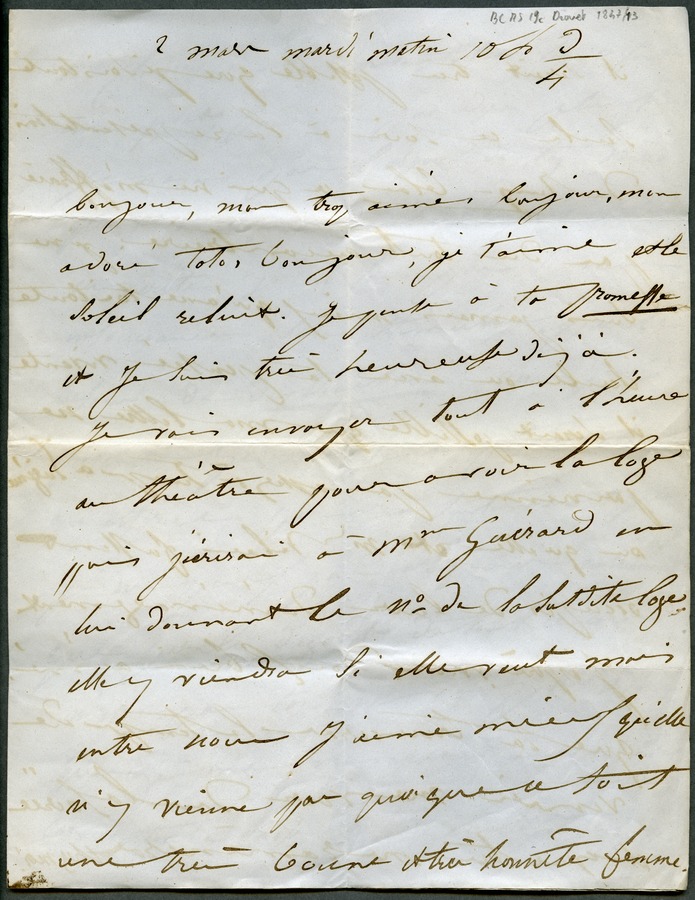 BC AJ 19c Drouet 1847/13
2 mars mardi matin 10 h 3/4
bonjour, mon trop aimé, bonjour, mon
adoré toto, bonjour, je t'aime et le
soleil reluit. Je pense à ta promesse
et je suis très heureuse déjà.
Je vais envoyer tout à l'heure
au théâtre pour avoir la loge
puis j'écrirai à Mme Guérard en
lui donnant le no de la susdite loge.
elle y viendra si elle veut mais
entre nous j'aime mieux qu'elle
n'y vienne pas quoique ce soit
une très bonne et très honnête femme.